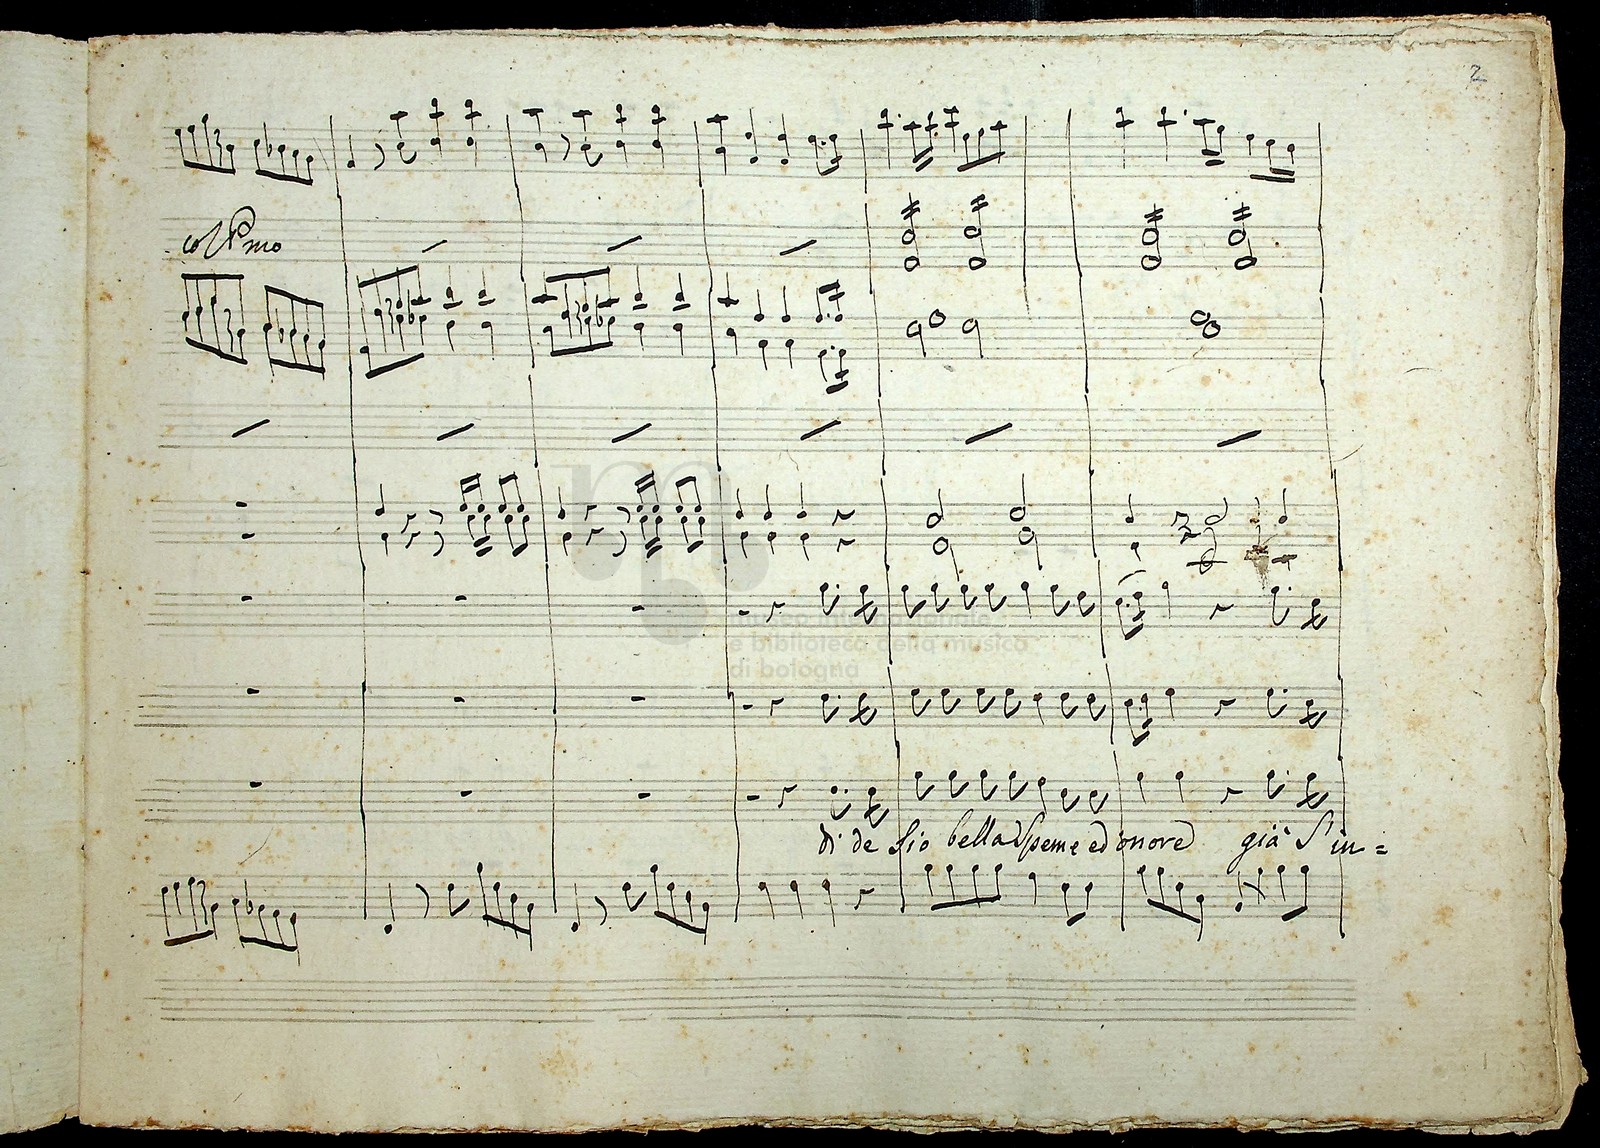 2
col Pmo
museo internazionale
e biblioteca della musica
di bologna
di de sio bella speme ed onore già s'in=